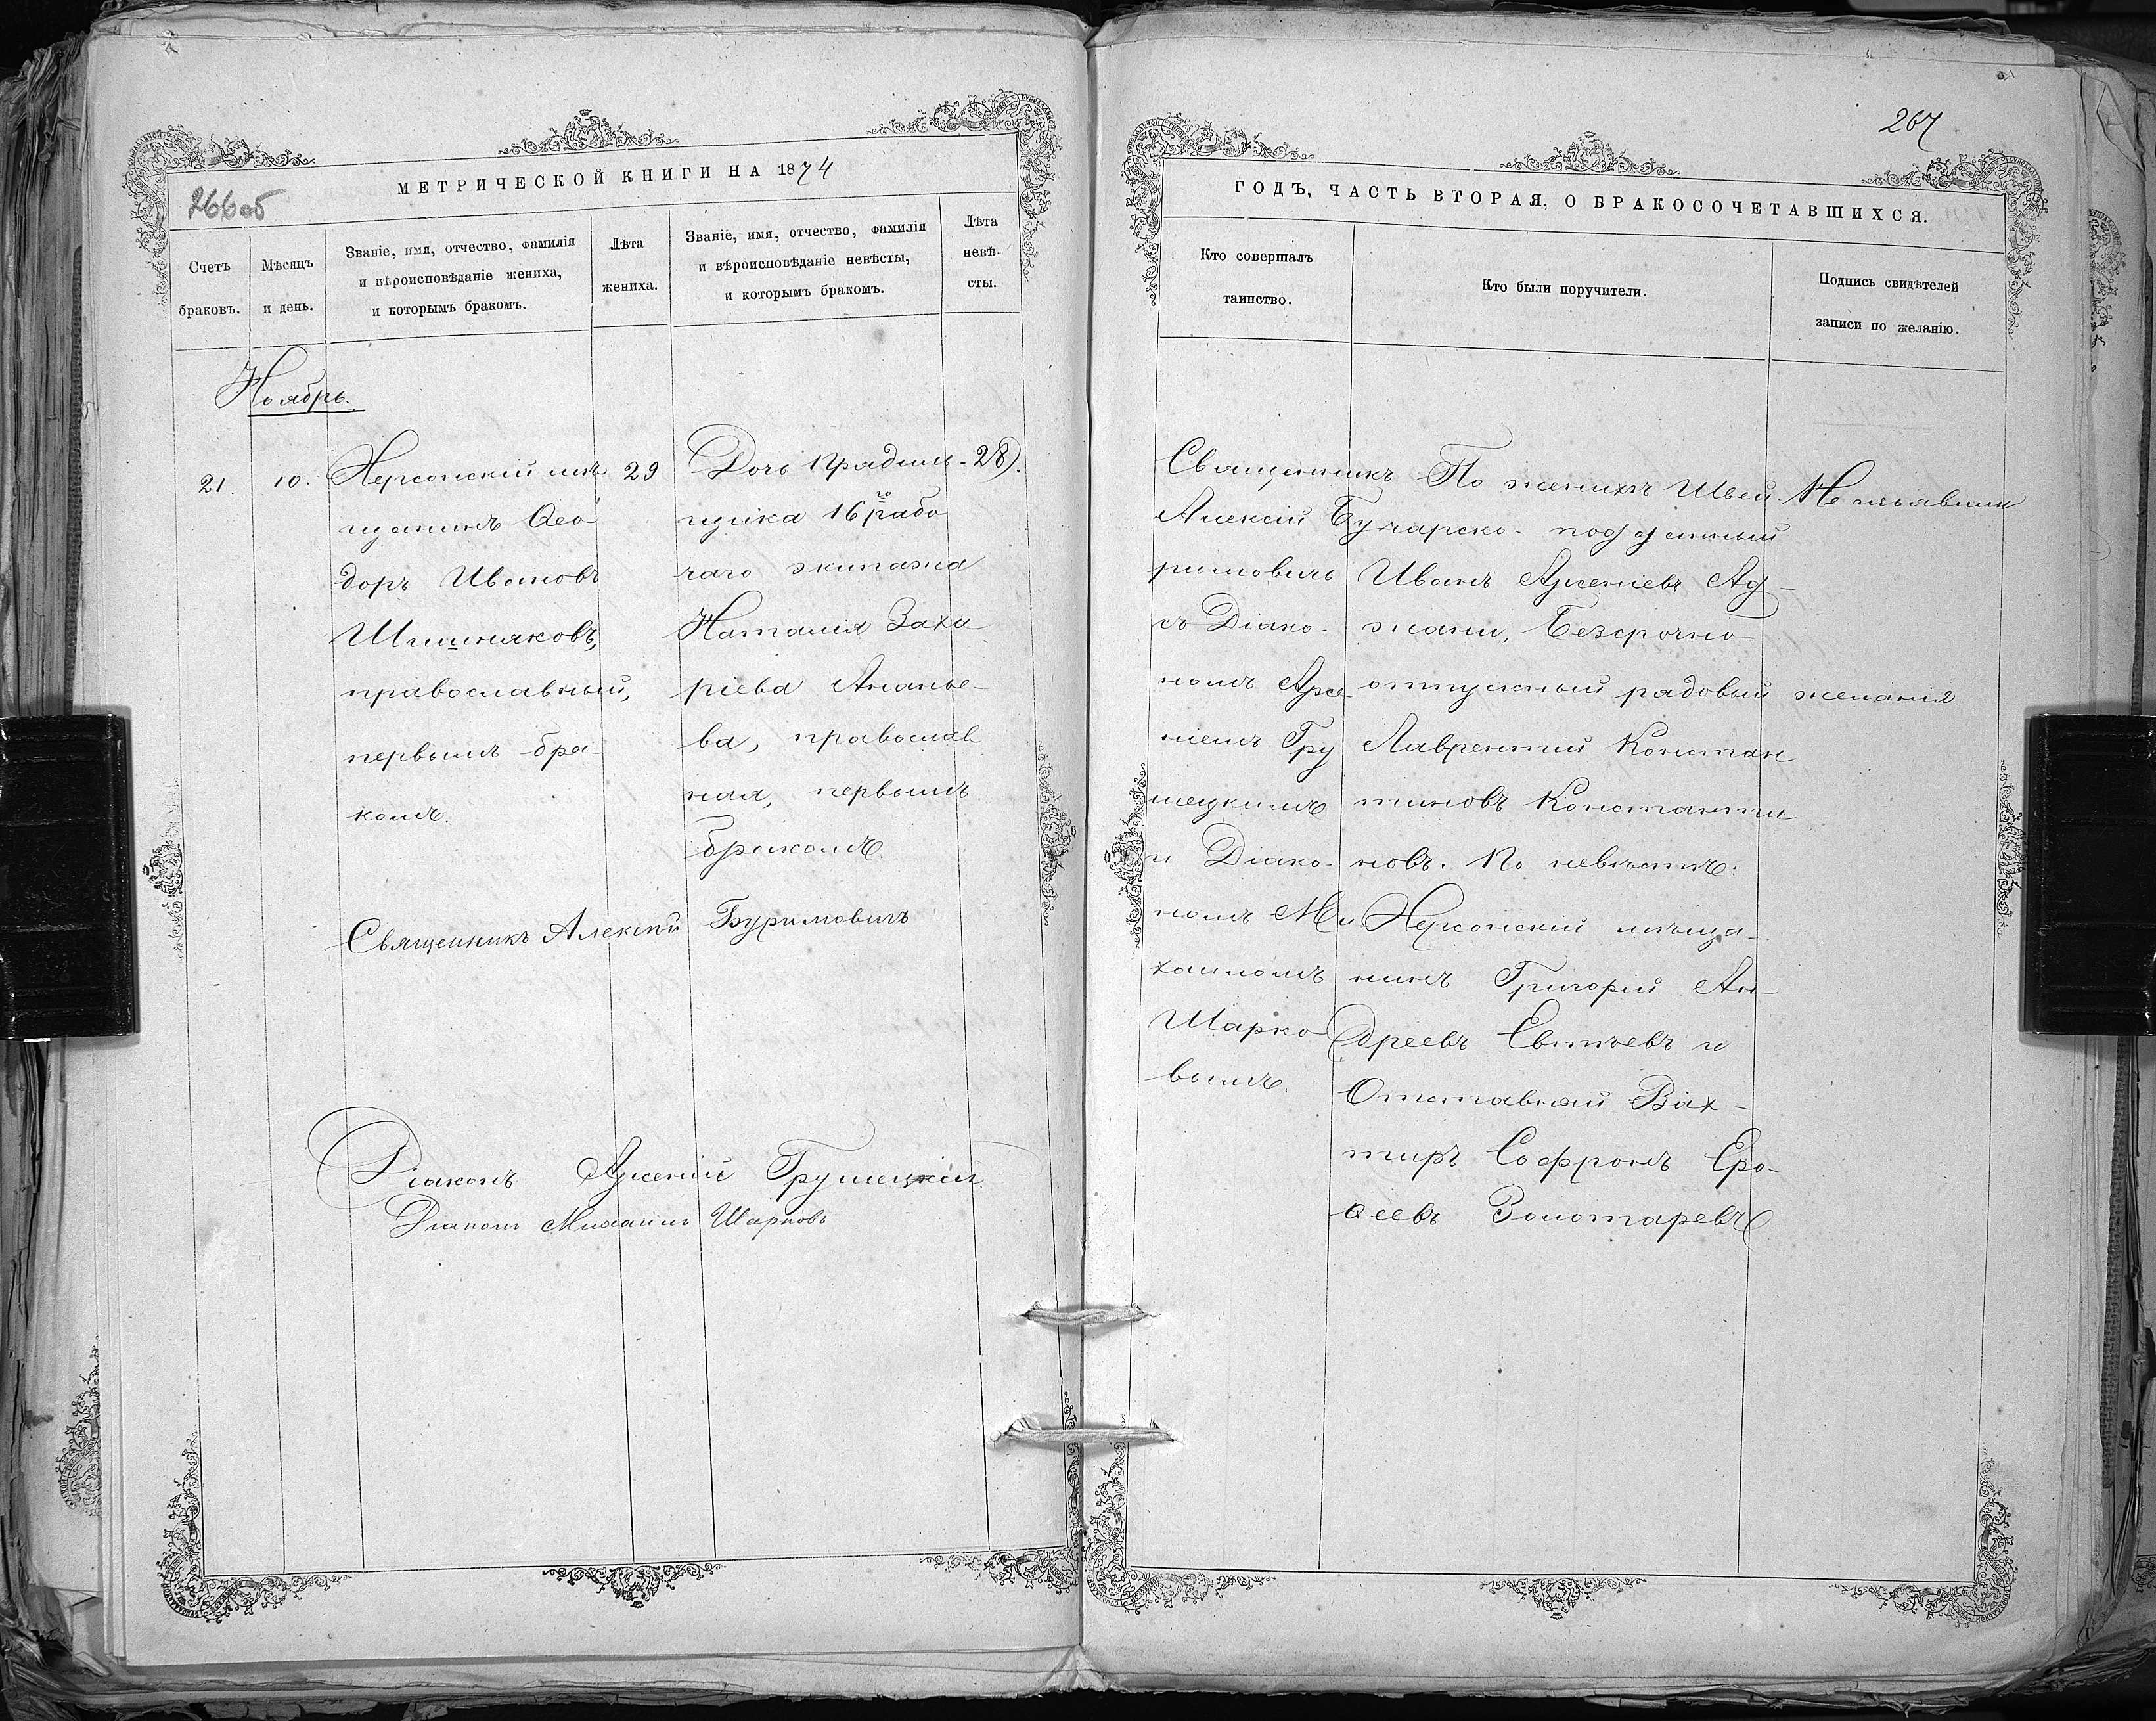 266об
МЕТРИЧЕСКОЙ КНИГИ НА 1874
Счетъ
браковъ.
Мѣсяцъ
и день.
Званіе, имя, отчество, фамилія
и вѣроисповѣданіе жениха,
и которымъ бракомъ.
Лѣта
жениха.
Званіе, имя, отчество, фамилія
и вѣроисповѣданіе невѣсты,
и которымъ бракомъ.
Лѣта
невѣ-
сты.
Ноябрь.
21.
10.
Херсонскій мѣ
щанинъ Ѳео-
доръ Ивановъ
православный,
первымъ бра-
комъ.
29
Дочь Прядиль-
щика 16го рабо
чаго экипажа
Наталія Заха
ріева Ананье-
ва, православ
ная, первымъ
бракомъ.
28
Священникъ Алексій Буримовичъ
Діаконъ Арсеній Грушецкій
Діаконъ Михаилъ Шарковъ
267
ГОДЪ, ЧАСТЬ ВТОРАЯ, О БРАКОСОЧЕТАВШИХСЯ.
Кто совершалъ
таинство.
Кто были поручители.
Подпись свидѣтелей
записи по желанію.
Священникъ
Алексій Бу
римовичъ
съ Діако-
номъ Арсе
ніемъ Гру
шецкимъ
и Діако-
номъ Ми
хаиломъ
Шарко
вымъ.
По женихѣ Швей
царско-подданный
Иванъ Арсеніевъ Ад-
жани, Безсрочно-
отпускный рядовый
Лаврентій Констан
тиновъ Константи
новъ. По невѣстѣ:
Херсонскій мѣща-
нинъ Григорій Ан-
дреевъ Евтѣевъ и
Отставной Вах-
тиръ Софронъ Еро-
ѳеевъ Золотаревъ
Не изъявили
желанія